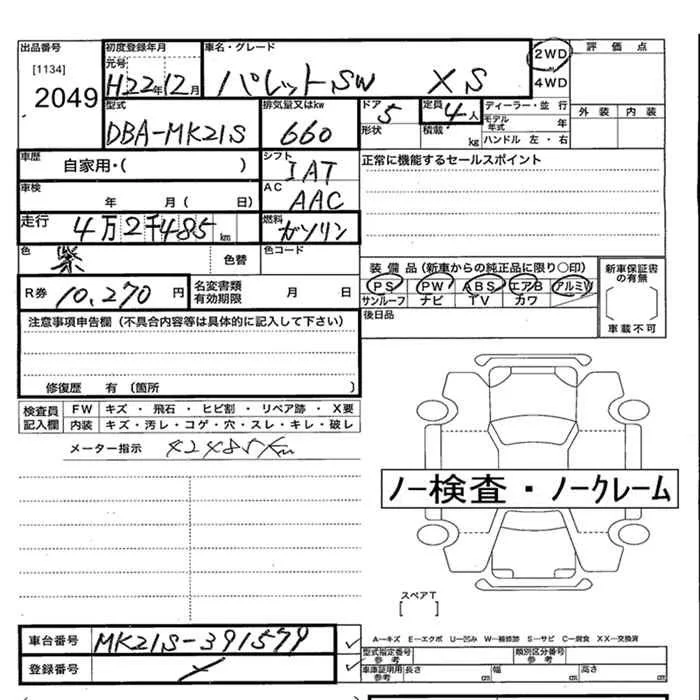 出品番号 初度登録年月 車名・グレード 2WD 評価点
[1134] 元号 H22年12月 パレットSW XS 4WD
2049
型式 排気量又はkw ドア 5 定員 4人 ディーラー・並行 外装 内装
DBA-MK21S 660 形状 積載 kg モデル年式 年
ハンドル 左・右
車歴 自家用・( ) シフト IAT 正常に機能するセールスポイント
車検 年 月( 日) AC AAC
走行 4万2千485km 燃料 ガソリン
色 紫 色替 色コード 装備品(新車からの純正品に限り○印) 新車保証書の有無
R券 10,270円 名変書類有効期限 月 日 PS PW ABS エアB アルミW
サンルーフ ナビ TV カワ
後日品 車載不可
注意事項申告欄(不具合内容等は具体的に記入して下さい)
修復歴 有(箇所 )
検査員 FW キズ・飛石・ヒビ割・リペア跡・X要
記入欄 内装 キズ・汚レ・コゲ・穴・スレ・キレ・破レ
メーター指示 42485Km
ノー検査・ノークレーム
スペアT
[ ]
車台番号 MK21S-391579 A―キズ E―エクボ U―凹み W―補修跡 S―サビ C―腐食 XX―交換済
型式指定番号 参考 類別区分番号 参考
登録番号 車庫証明用 参考 長さ cm 幅 cm 高さ cm